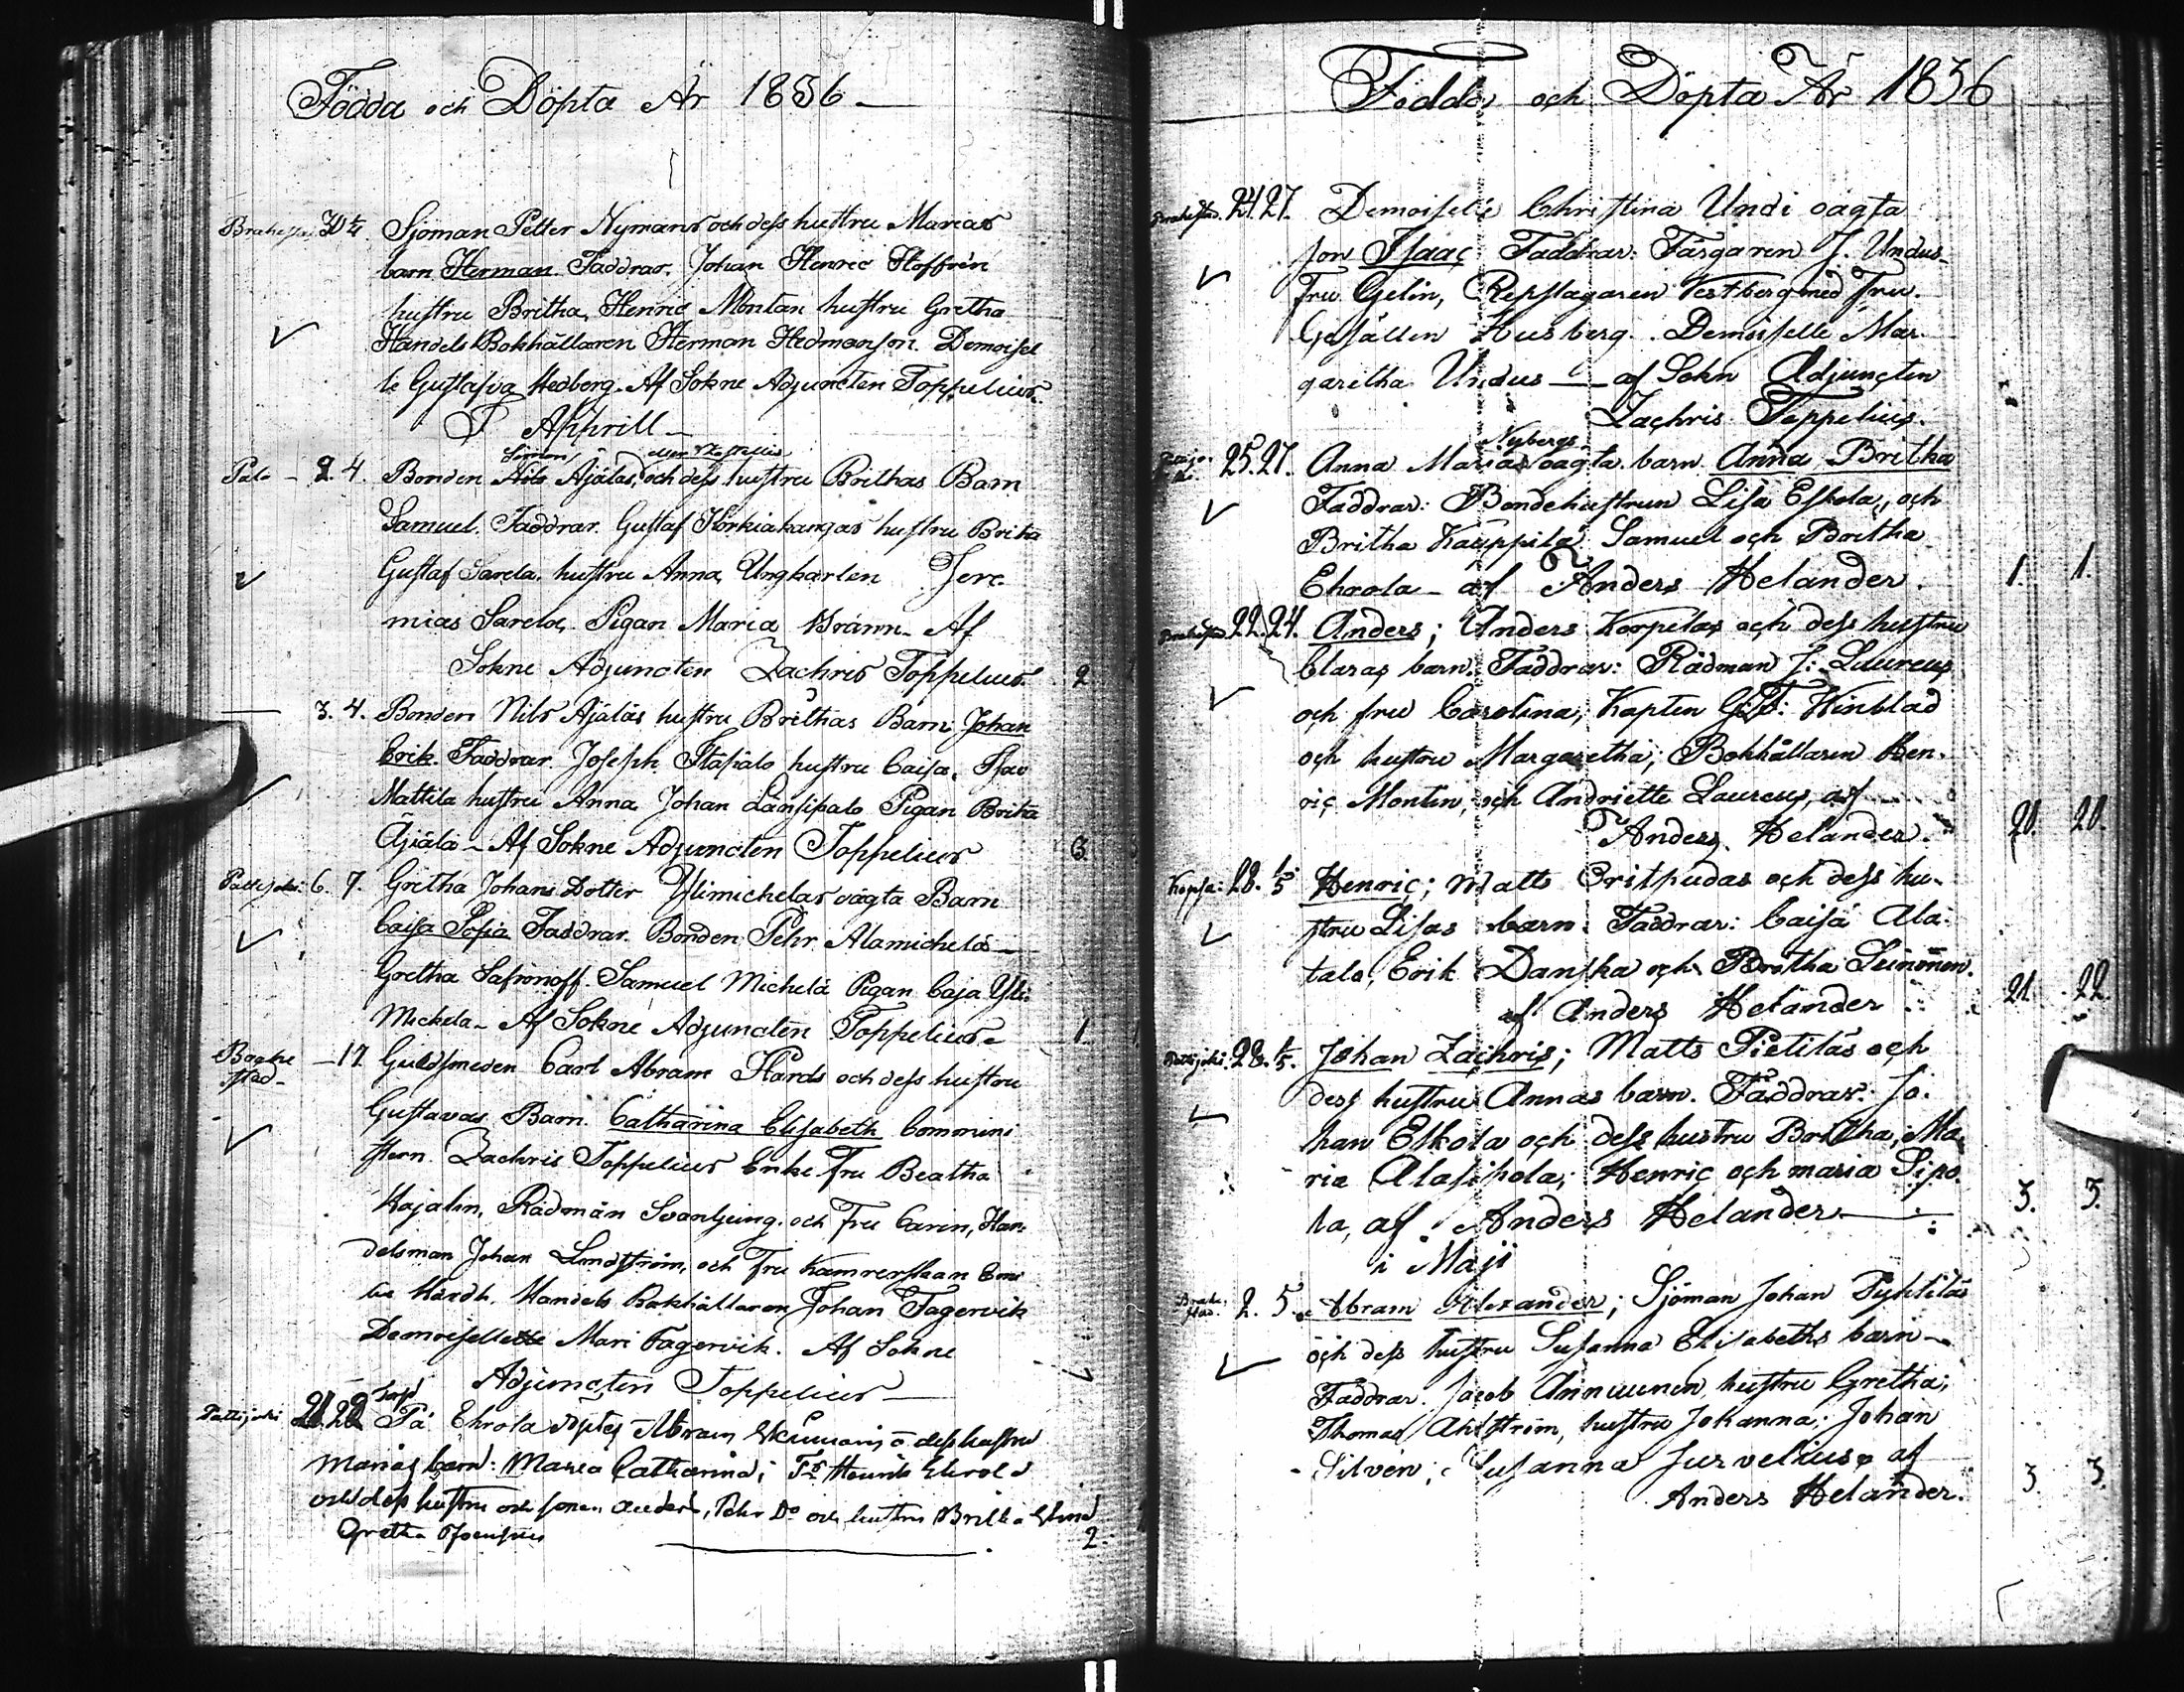 Födda och Döpta År 1836
Brahestad 30 Sjöman Petter Nymans och dess hustru Marias
barn Herman. Faddrar. Johan Henric Hoffrén
hustru Britha, Henric Montan hustru Gretha
Handels Bokhållaren Herman Hedmanson. Demoisel
le Gustafva Hedberg. Af Sokne Adjuncten Toppelius
I Aprill
Simon
Palo 2. 4. Bonden Nils Äjälas, och dess hustru Brithas Barn
Samuel. Faddrar. Gustaf Korkiakangas hustru Brita
Gustaf Sarela. hustru Anna, Ungkarlen Jere
mias Sarela, Pigan Maria Brännn. Af
Sokne Adjuncten Zachris Toppelius. 2
3. 4. Bonden Nils Äjäläs hustru Brithas Barn Johan
Erik. Faddrar. Joseph hustru Caisa. Isac
Mattila hustru Anna Johan Länsipalo Pigan Brita
Äjälä - Af Sokne Adjuncten Toppelius 3
Pattijoki: 6. 7. Gretha Johans Dotter Ylimichelas oägta Barn
Caisa Sofia Faddrar. Bonden Pehr Alamichelä
Gretha Safronoff. Samuel Michelä Pigan Caja Yli
Mickela - Af Sokne Adjuncten Toppelius 1
Brahe
stad - 17 Guldsmeden Carl Abram Hårds och dess hustru
Gustavas Barn. Catharina Elisabeth Commini
stern Zachris Toppelius Enke Fru Beatha
Kajalin, Rådmän Svanljung och Fru Carin, Han
delsman Johan Lundström, och Fru Kamrerskan Emi
lia Hårdh. Handels Bokhållaren Johan Fagervik
Demoiselle Mari Fagervik. Af Sokne
Adjuncten Toppelius
Pattijoki 21. 22 På Ehrola döptes Abram och dess hustru
Marias barn: Maria Catharina; Henrik Ehrola
och dess hustru och sonen Anders, Pehr Do och hustru Britha
Gretha 2.
Födda och Döpta År 1836
Brahestad. 24. 27. Demoiselle Christina Undi oägta
son Isaac Faddrar: Färgaren J. Undus
Fru Gelin, Repslagaren Vestberg med Fru.
Gesällen Husberg. Demoiselle Mar
garetha Undus — af Sokn Adjuncten
Zachris Toppelius.
Nybergs
25. 27. Anna Marias oägta barn Anna Britha
Faddrar: Bondehustrun Lisa Eskola, och
Britha Kauppila Samuel och Britha
Ehrola - af Anders Helander. 1. 1.
Brahestad 22. 24. Anders; Anders Korpelas och dess hustru
Claras barn. Faddrar: Rådman J: Laureus
och fru Carolina; Kapten Kinblad
och hustru Margaretha; Bokhållaren Hen-
ric Montin, och Andriette Laureus, af
Anders Helander. 20. 20.
Kopsa: 28. 1/5 Henric; Matts Britpudas och dess hu-
stru Lisas barn. Faddrar: Caisa Ala-
talo, Erik Danska och Britha Leinonen.
af Anders Helander 21. 22.
Pattijoki. 28. 1/5. Johan Zachris; Matts Pietiläs och
dess hustru Annas barn. Faddrar: Jo-
han Eskola och dess hustru Britha; Ma
ria Alasipola; Henric och maria Sipo
la, af Anders Helander 3. 3.
i Maji
Brahe
stad. 2. 5. Abram Alexander; Sjöman Johan Pyhtiläs
och dess hustru Susanna Elisabeths barn
Faddrar. Jacob Annunen, hustru Gretha;
Thomas Ahlström, hustru Johanna; Johan
Silvén; Susanna Jurvelius, af
Anders Helander. 3 3.